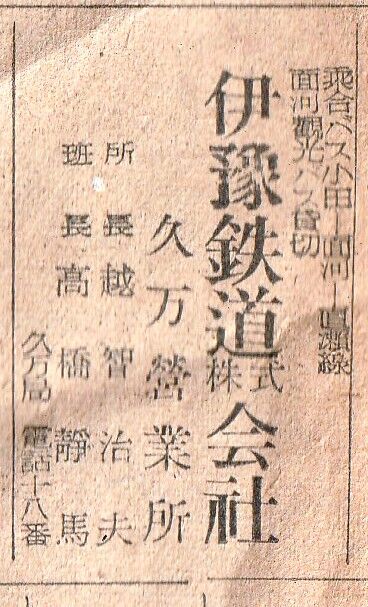 乗合バス小田ー面河ー直瀬線
面河観光バス貸切
伊豫鉄道株式会社
久万營業所
所長越智治夫
班長高橋靜馬
久万局 電話十八番